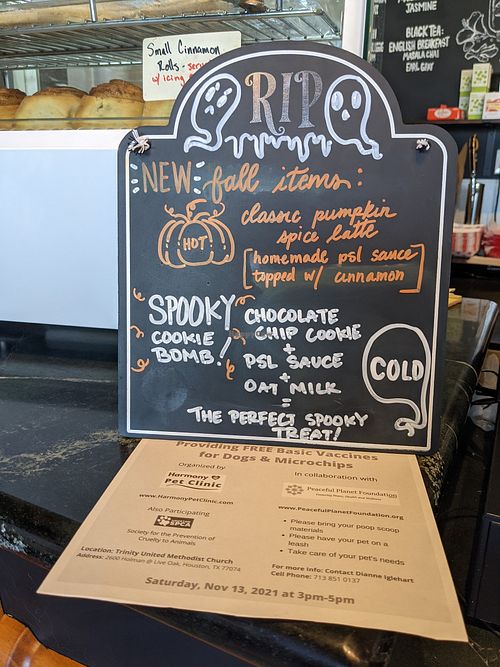 JASMINE
BLACK TEA:
ENGLISH BREAKFAST
MASALA CHAI
EARL GREY
Small Cinnamon
Rolls -
w/ icing
RIP
NEW fall items:
HOT
classic pumpkin
spice latte
[homemade psl sauce
topped w/ cinnamon]
SPOOKY
COOKIE
BOMB!
CHOCOLATE
CHIP COOKIE
+
PSL SAUCE
+
OAT MILK
=
THE PERFECT SPOOKY
TREAT!
COLD
Providing FREE Basic Vaccines
for Dogs & Microchips
Organized by
Harmony
Pet Clinic
www.HarmonyPetClinic.com
Also Participating
SPCA
Society for the Prevention of
Cruelty to Animals
In collaboration with
Peaceful Planet Foundation
www.PeacefulPlanetFoundation.org
• Please bring your poop scoop
materials
• Please have your pet on a
leash
• Take care of your pet's needs
Location: Trinity United Methodist Church
Address: 2600 Holman @ Live Oak, Houston, TX 77074
For more info: Contact Dianne Iglehart
Cell Phone: 713 851 0137
Saturday, Nov 13, 2021 at 3pm-5pm